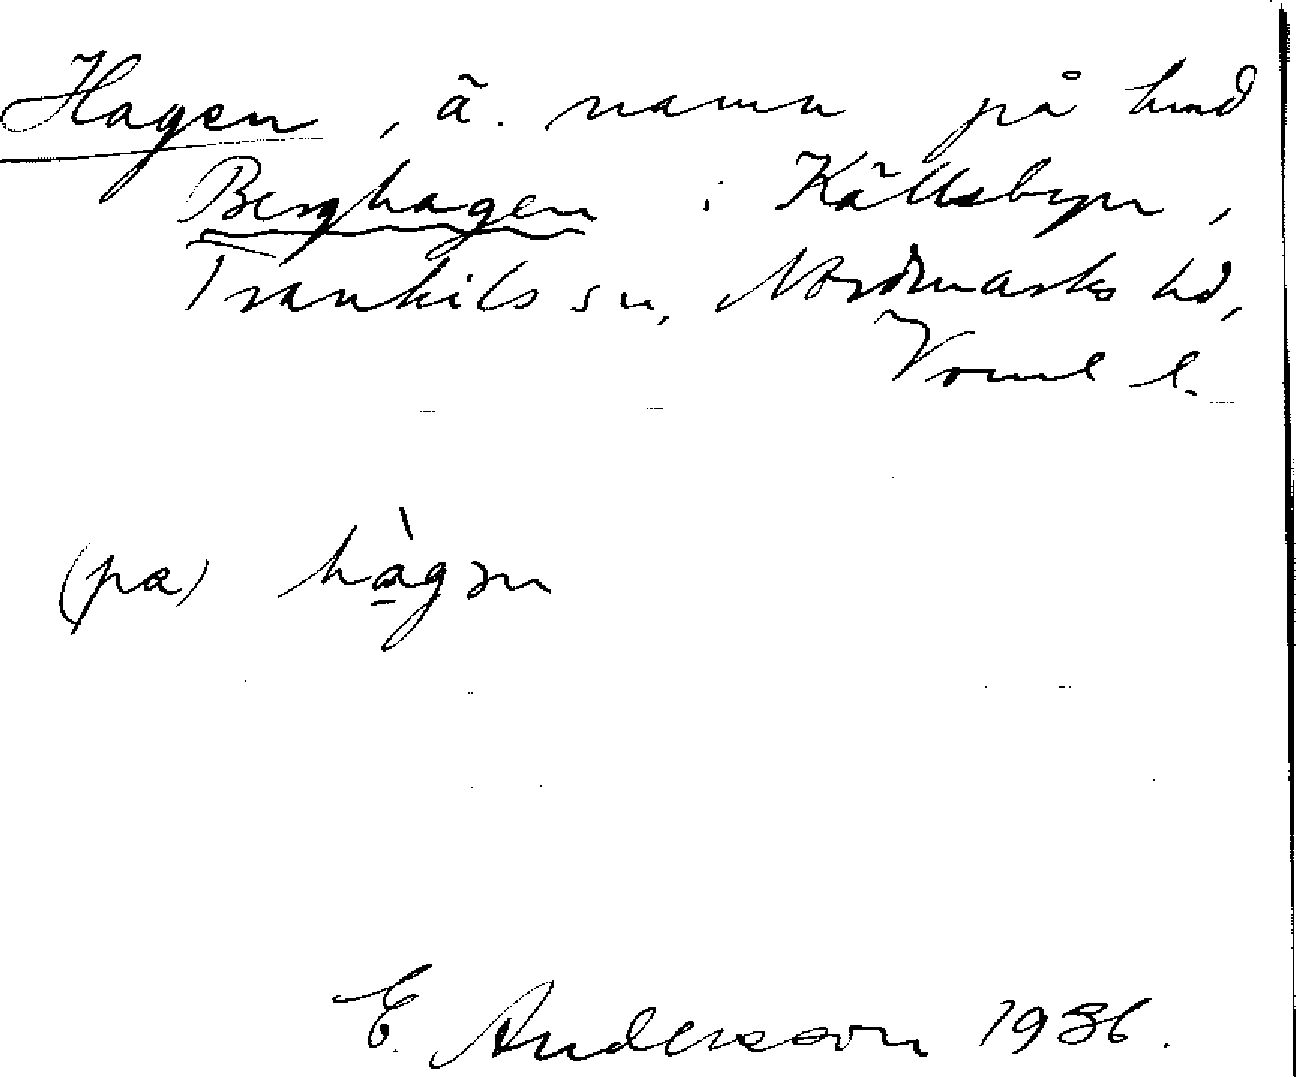 Hagen, ä. namn på hmd
Berghagen i Källsbyn,
Trankils sn, Nordmarks hd,
Vrml l.
(pa) hàgən
E. Andersson 1936.